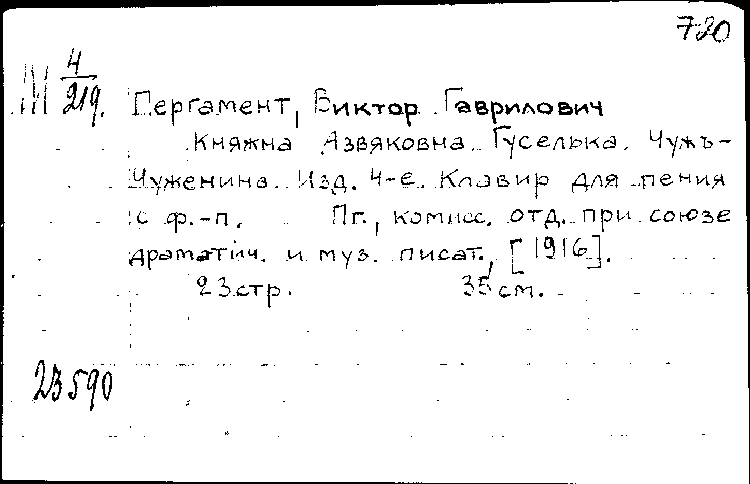 780
М 4/219.
Пергамент, Виктор Гаврилович
Княжна Азвяковна. Гуселька. Чужъ-
Чуженина. Изд. 4-е. Клавир для пения
с ф.-п. Пг., комисс. отд. при союзе
драматич. и муз. писат., [1916].
23 стр. 35 см.
23590